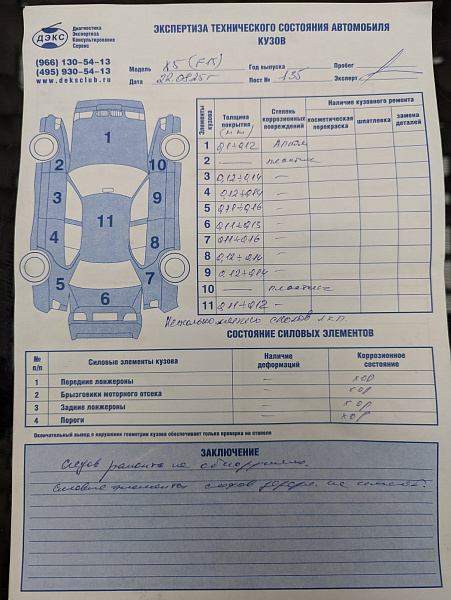 ДЭКС
Диагностика
Экспертиза
Консультирование
Сервис
(966) 130-54-13
(495) 930-54-13
www.deksclub.ru
ЭКСПЕРТИЗА ТЕХНИЧЕСКОГО СОСТОЯНИЯ АВТОМОБИЛЯ
КУЗОВ
Модель X5 (F15) Год выпуска Пробег
Дата Пост № 135 Эксперт
Элементы кузова
Толщина покрытия (мм)
Степень коррозионных повреждений
Наличие кузовного ремонта
косметическая перекраска
шпатлевка
замена деталей
1 0,1÷0,12
2 — пластик
3 0,12÷0,14 —
4 0,12÷0,14 —
5 0,16 —
6 0,11÷0,13 —
7 0,11÷0,16 —
8 0,12÷0,14 —
9 0,12÷0,14 —
10 — пластик
11 0,11÷0,12 —
1 2 3 4 5 6 7 8 9 10 11
сколов лкп.
СОСТОЯНИЕ СИЛОВЫХ ЭЛЕМЕНТОВ
№ п/п Силовые элементы кузова Наличие деформаций Коррозионное состояние
1 Передние лонжероны — хор
2 Брызговики моторного отсека — хор
3 Задние лонжероны — хор
4 Пороги — хор
Окончательный вывод о нарушении геометрии кузова обеспечивает только проверка на стапеле
ЗАКЛЮЧЕНИЕ
Следов ремонта не обнаружено.
Силовые элементы следов дефор. не имеют.